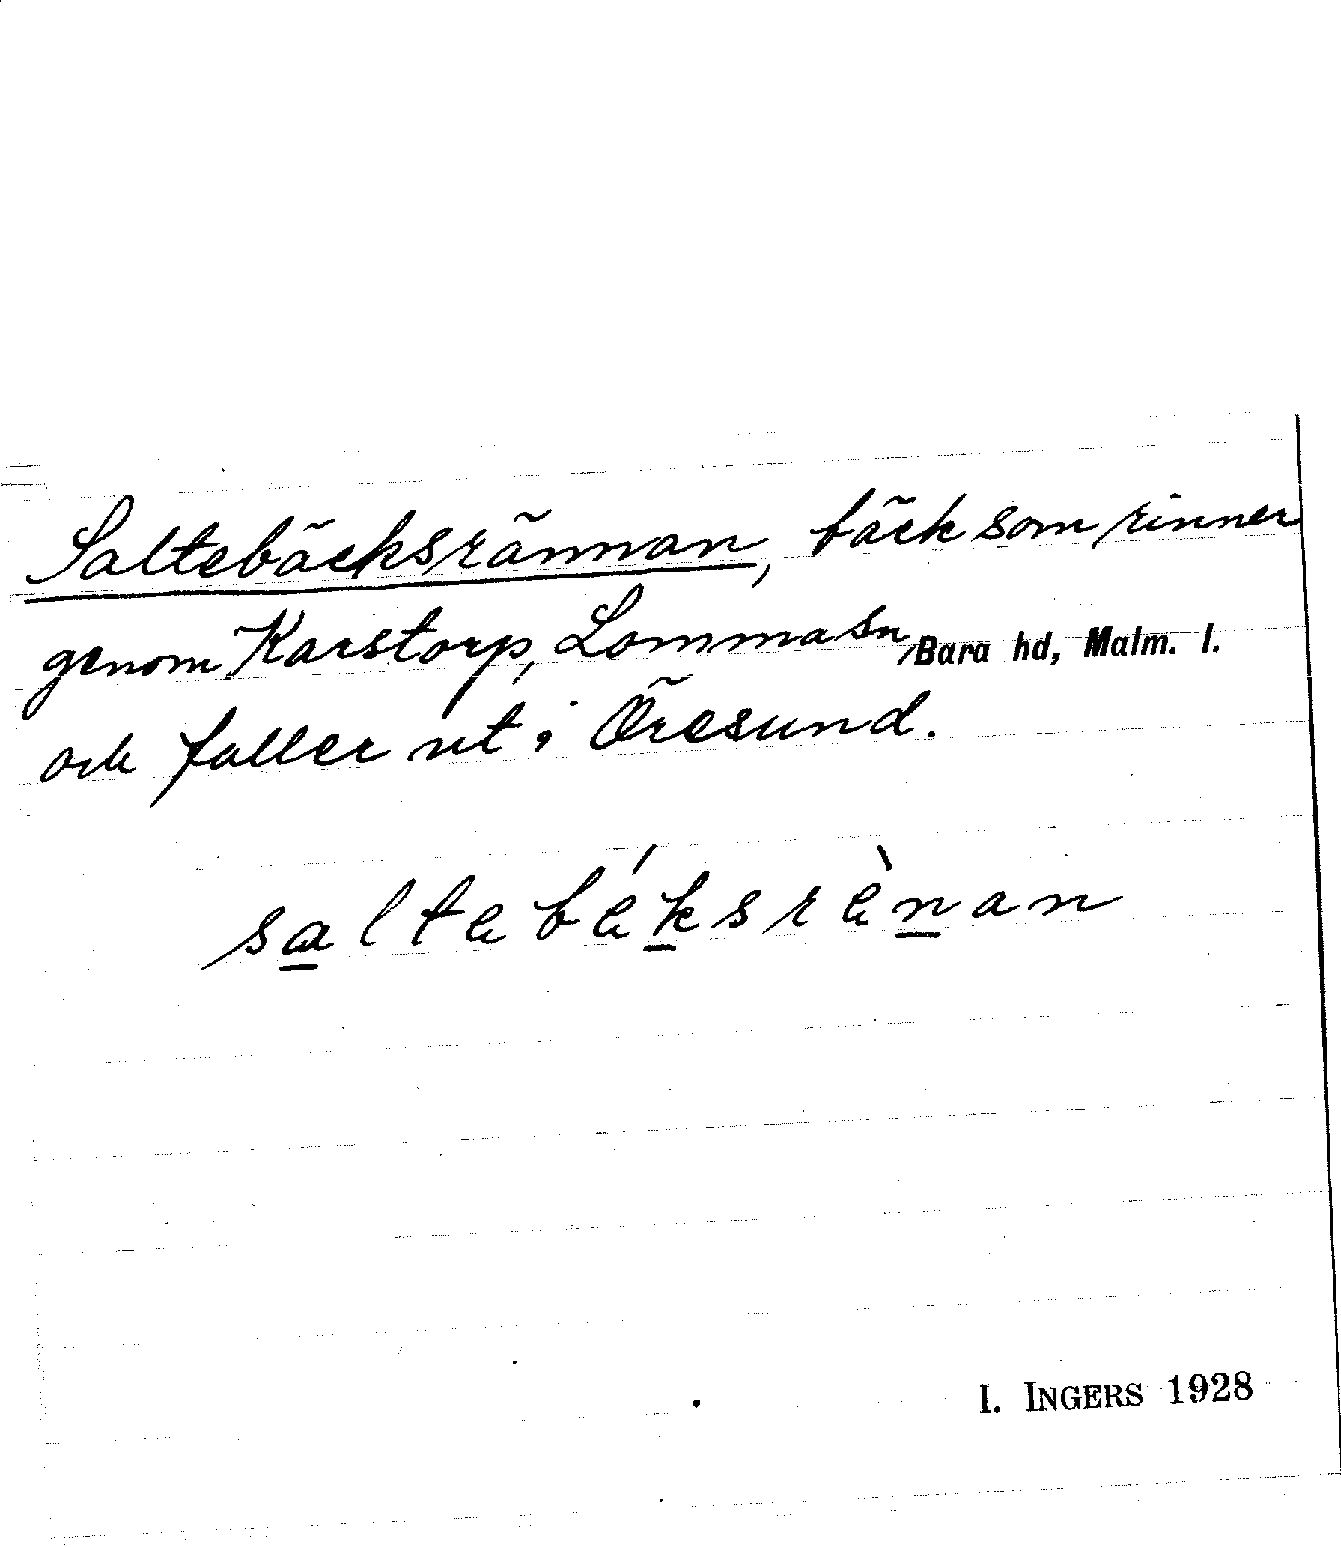 Saltebäcksrännan, bäck som rinner
genom Karstorp, Lomma sn, Bara hd, Malm. l.
och faller ut i Öresund.
saltebéksrènan
I. INGERS 1928